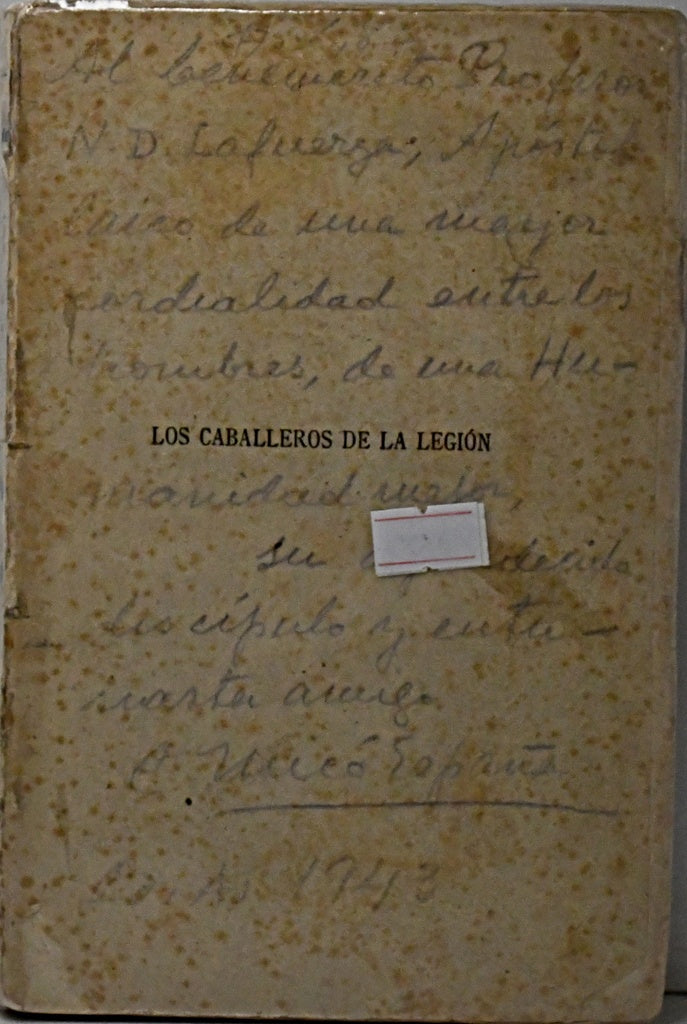 Al benemérito Profesor
N. D. Lafuerza, Apóstol
laico de una mayor
cordialidad entre los
hombres, de una Hu-
LOS CABALLEROS DE LA LEGIÓN
manidad mejor,
su
discípulo y entu-
siasta amigo
A. Micó España
1943